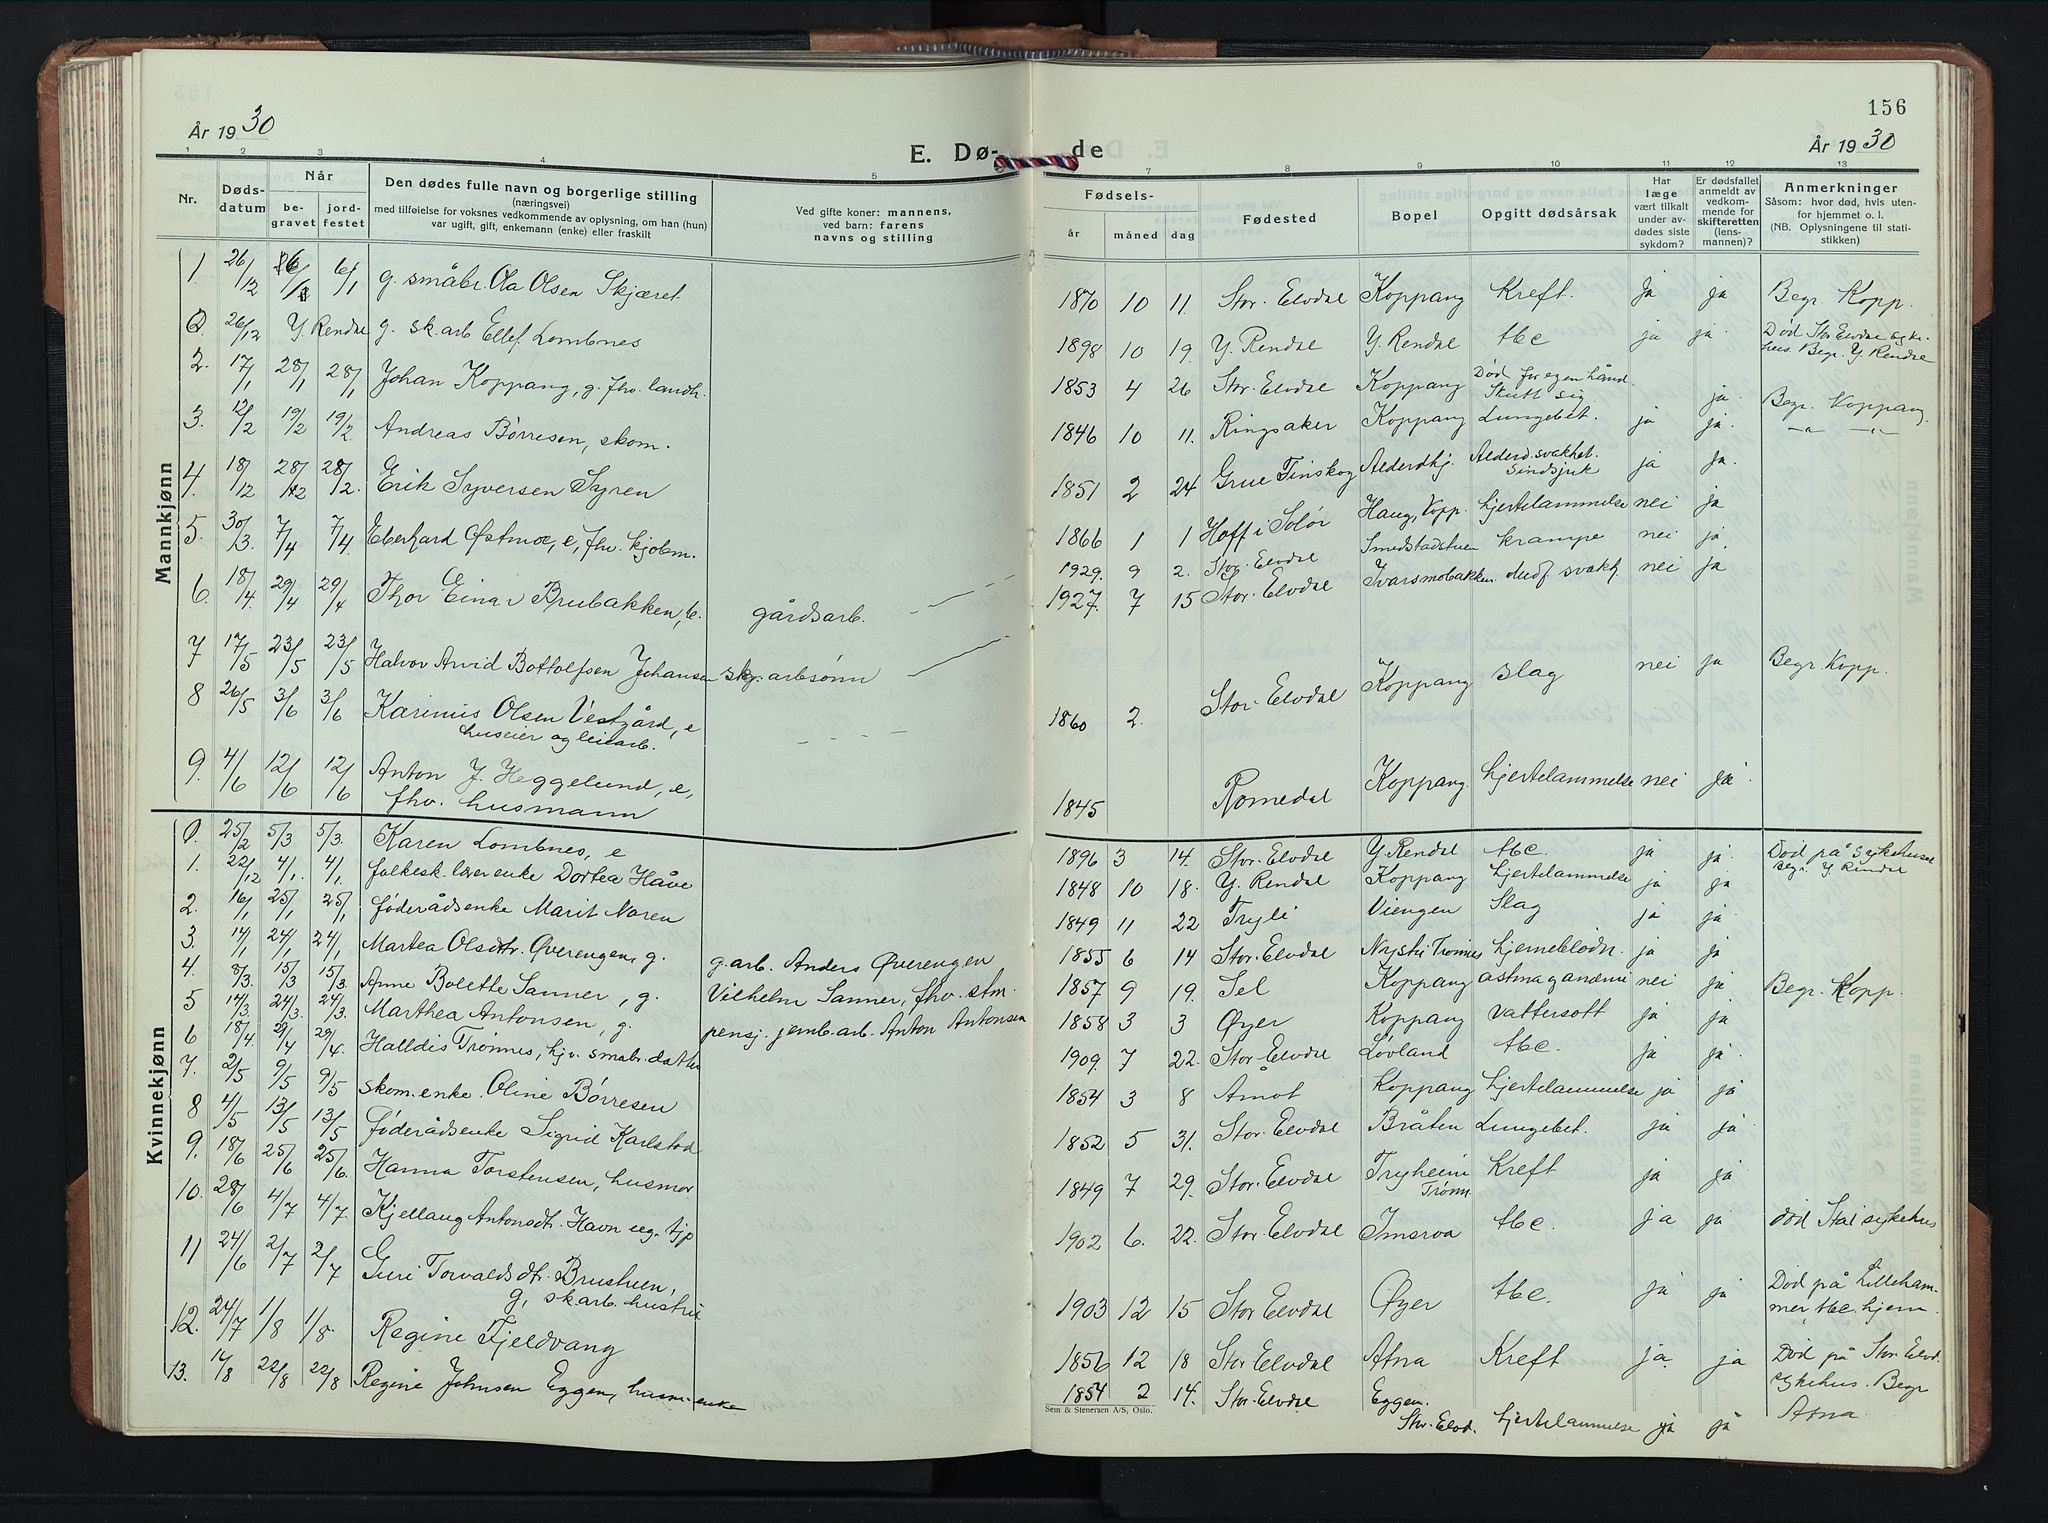 156
År 1930
År 1930
E. Dø- de
1 2 3 4 5 7 8 9 10 11 12 13
Nr.
Dødsdatum
Når
begravet
jordfestet
Den dødes fulle navn og borgerlige stilling
(næringsvei)
med tilføielse for voksnes vedkommende av oplysning, om han (hun)
var ugift, gift, enkemann (enke) eller fraskilt
Ved gifte koner: mannens,
ved barn: farens
navns og stilling
Fødsels-
år måned dag
Fødested
Bopel
Opgitt dødsårsak
Har
læge
vært tilkalt
under avdødes
siste
sykdom?
Er dødsfallet
anmeldt av
vedkommende
for
skifteretten
(lensmannen)?
Anmerkninger
Såsom: hvor død, hvis utenfor
hjemmet o. l.
(NB. Oplysningene til statistikken)
Mannkjønn
1. 26/12 6/1 6/1 g. småbr. Ola Olsen Skjæret 1870 10 11. Stor-Elvdal Koppang Kreft. ja ja Begr. Kopp.
0 26/12 Y. Rendal g. sk.arb Ellef Lombnes 1898 10 19. Y. Rendal Y. Rendal tbc ja ja. Død Stor Elvdal sykehus. Begr. Y Rendal
2. 17/1 28/1 28/1 Johan Koppang, g. fhv. landh. 1853 4 26 Stor-Elvdal Koppang Død for egen hånd. Skutt sig. ja. Begr. Koppang.
3. 12/2 19/2 19/2 Andreas Børresen, skom. 1846 10 11. Ringsaker Koppang Lungebet. ja ja. -"- -"-
4. 18/12 28/2 28/2. Erik Syversen Syren 1851 2 24 Grue Finskog Alderdhj. Alderd.svakhet. sindsjuk ja ja.
5. 30/3. 7/4 7/4. Eberhard Østmoe, e, fhv. kjøbm. 1866 1 1 Hoff i Solør Haug, Kopp. hjertelammelse nei ja
6. 18/4. 29/4 29/4 Thor Einar Brubakken, b. gårdsarb. 1929. 9 2. Stor-Elvdal Smedstadstuen krampe nei ja
7 17/5 23/5 23/5 Halvor Arvid Bottolfsen Johansen skg.arbsønn 1927. 7 15 Stor-Elvdal Ivarsmobakken medf. svakh. nei ja
8 26/5 3/6 3/6 Karinius Olsen Vestgård, e
huseier og leiearb. 1860 2. Stor-Elvdal Koppang slag nei ja Begr. Kopp.
9. 4/6 12/6 12/6 Anton J. Heggelund, e,
fhv. husmann 1845 Romedal Koppang. hjertelammelse nei ja
Kvinnekjønn
0. 25/2 5/3 5/3. Karen Lombnes, e 1896 3 14. Stor-Elvdal Y. Rendal tbc. ja ja. Død på sykehuset Begr. Y Rendal
1. 22/12 4/1. 4/1. folkesk. lærerenke Dortea Håve 1848 10 18. Y. Rendal Koppang hjertelammelse ja ja
2. 16/1 25/1 25/1 føderådsenke Marit Noren 1849 11 22 Trysli Viengen Slag ja ja
3. 14/1 24/1 24/1 Martea Olsdtr. Øverengen, g. g.arb. Anders Øverengen 1855 6 14 Stor-Elvdal Nysti Trønnes hjerneblødn. ja ja
4. 8/3. 15/3 15/3. Anne Bolette Sanner, g. Vilhelm Sanner, fhv. stm. 1857 9 19. Sel Koppang astma g anæmi nei ja Begr. Kopp.
5 14/3. 24/3. 24/3. Marthea Antonsen, g. pensj. jernb.arb. Anton Antonsen 1858 3 3 Øyer Koppang vattersott ja ja
6 18/4. 29/4 29/4. Halldis Trønnes, hjv. småbr.datter 1909. 7 22. Stor-Elvdal Løvland tbc. ja ja.
7. 2/5 9/5 9/5 skom.enke. Oline Børresen 1854 3 8 Åmot Koppang hjertelammelse ja ja
8 4/5 13/5 13/5 føderådsenke Sigrid Karlstad 1852 5 31. Stor-Elvdal Bråten Lungebet. ja ja
9. 18/6 25/6 25/6. Hanna Torstensen, husmor 1849 7 29. Stor-Elvdal Trygheim Trønn. Kreft ja ja
10. 28/6 4/7 4/7. Kjellaug Antonsdt. Havn ug. tjp 1902 6. 22. Stor-Elvdal Imsroa tbc. ja ja død Stai sykehus
11 24/6 2/7 2/7 Guri Torvaldsdt. Brustuen,
g, sk arb. hustru 1903 12 15 Stor Elvdal Øyer tbc. ja ja Død på Lillehammer, tbc. hjem.
12. 24/7 1/8 1/8. Regine Fjeldvang 1856 12 18 Stor Elvdal Atna Kreft ja. ja Død på Stor Elvd. sykehus. Begr Atna.
13. 14/8 22/8 22/8 Regine Johnsen Eggen, husm-enke 1854 2 14. Stor-Elvdal Eggen. Stor-Elvd. hjertelammelse ja ja
Sem & Stenersen A/S, Oslo.